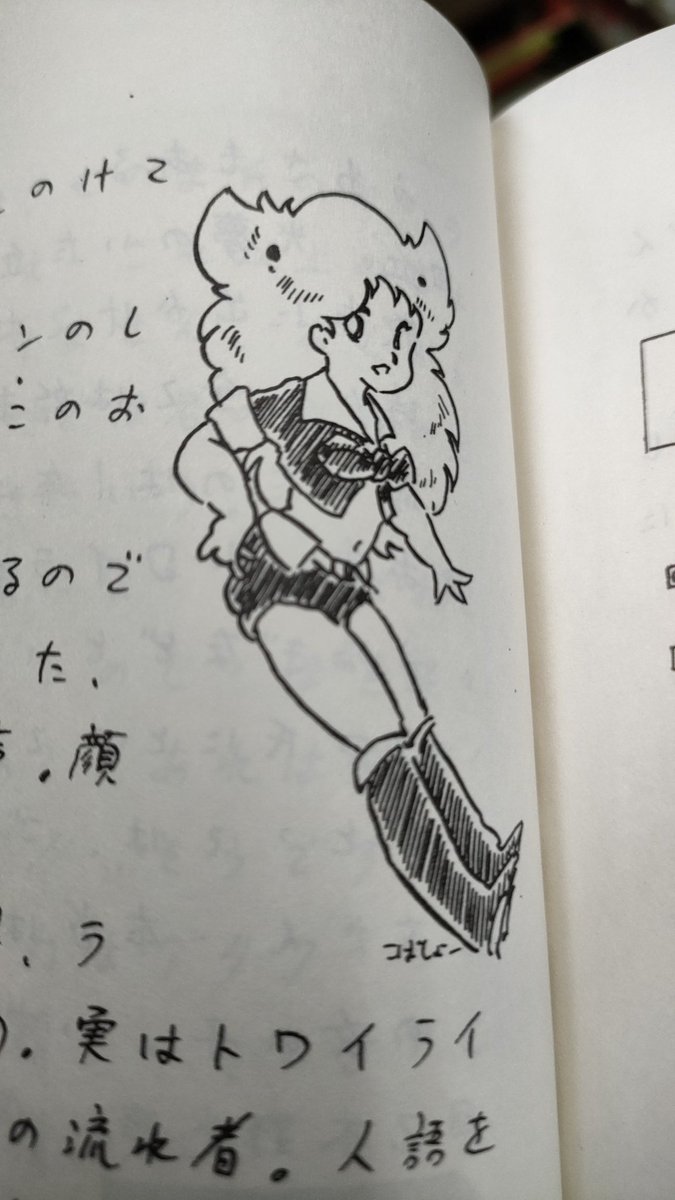 のけて
ンのし
このお
るので
た、
。顔
、ラ
つまひょー
。実はトワイライ
の流れ者。人語を